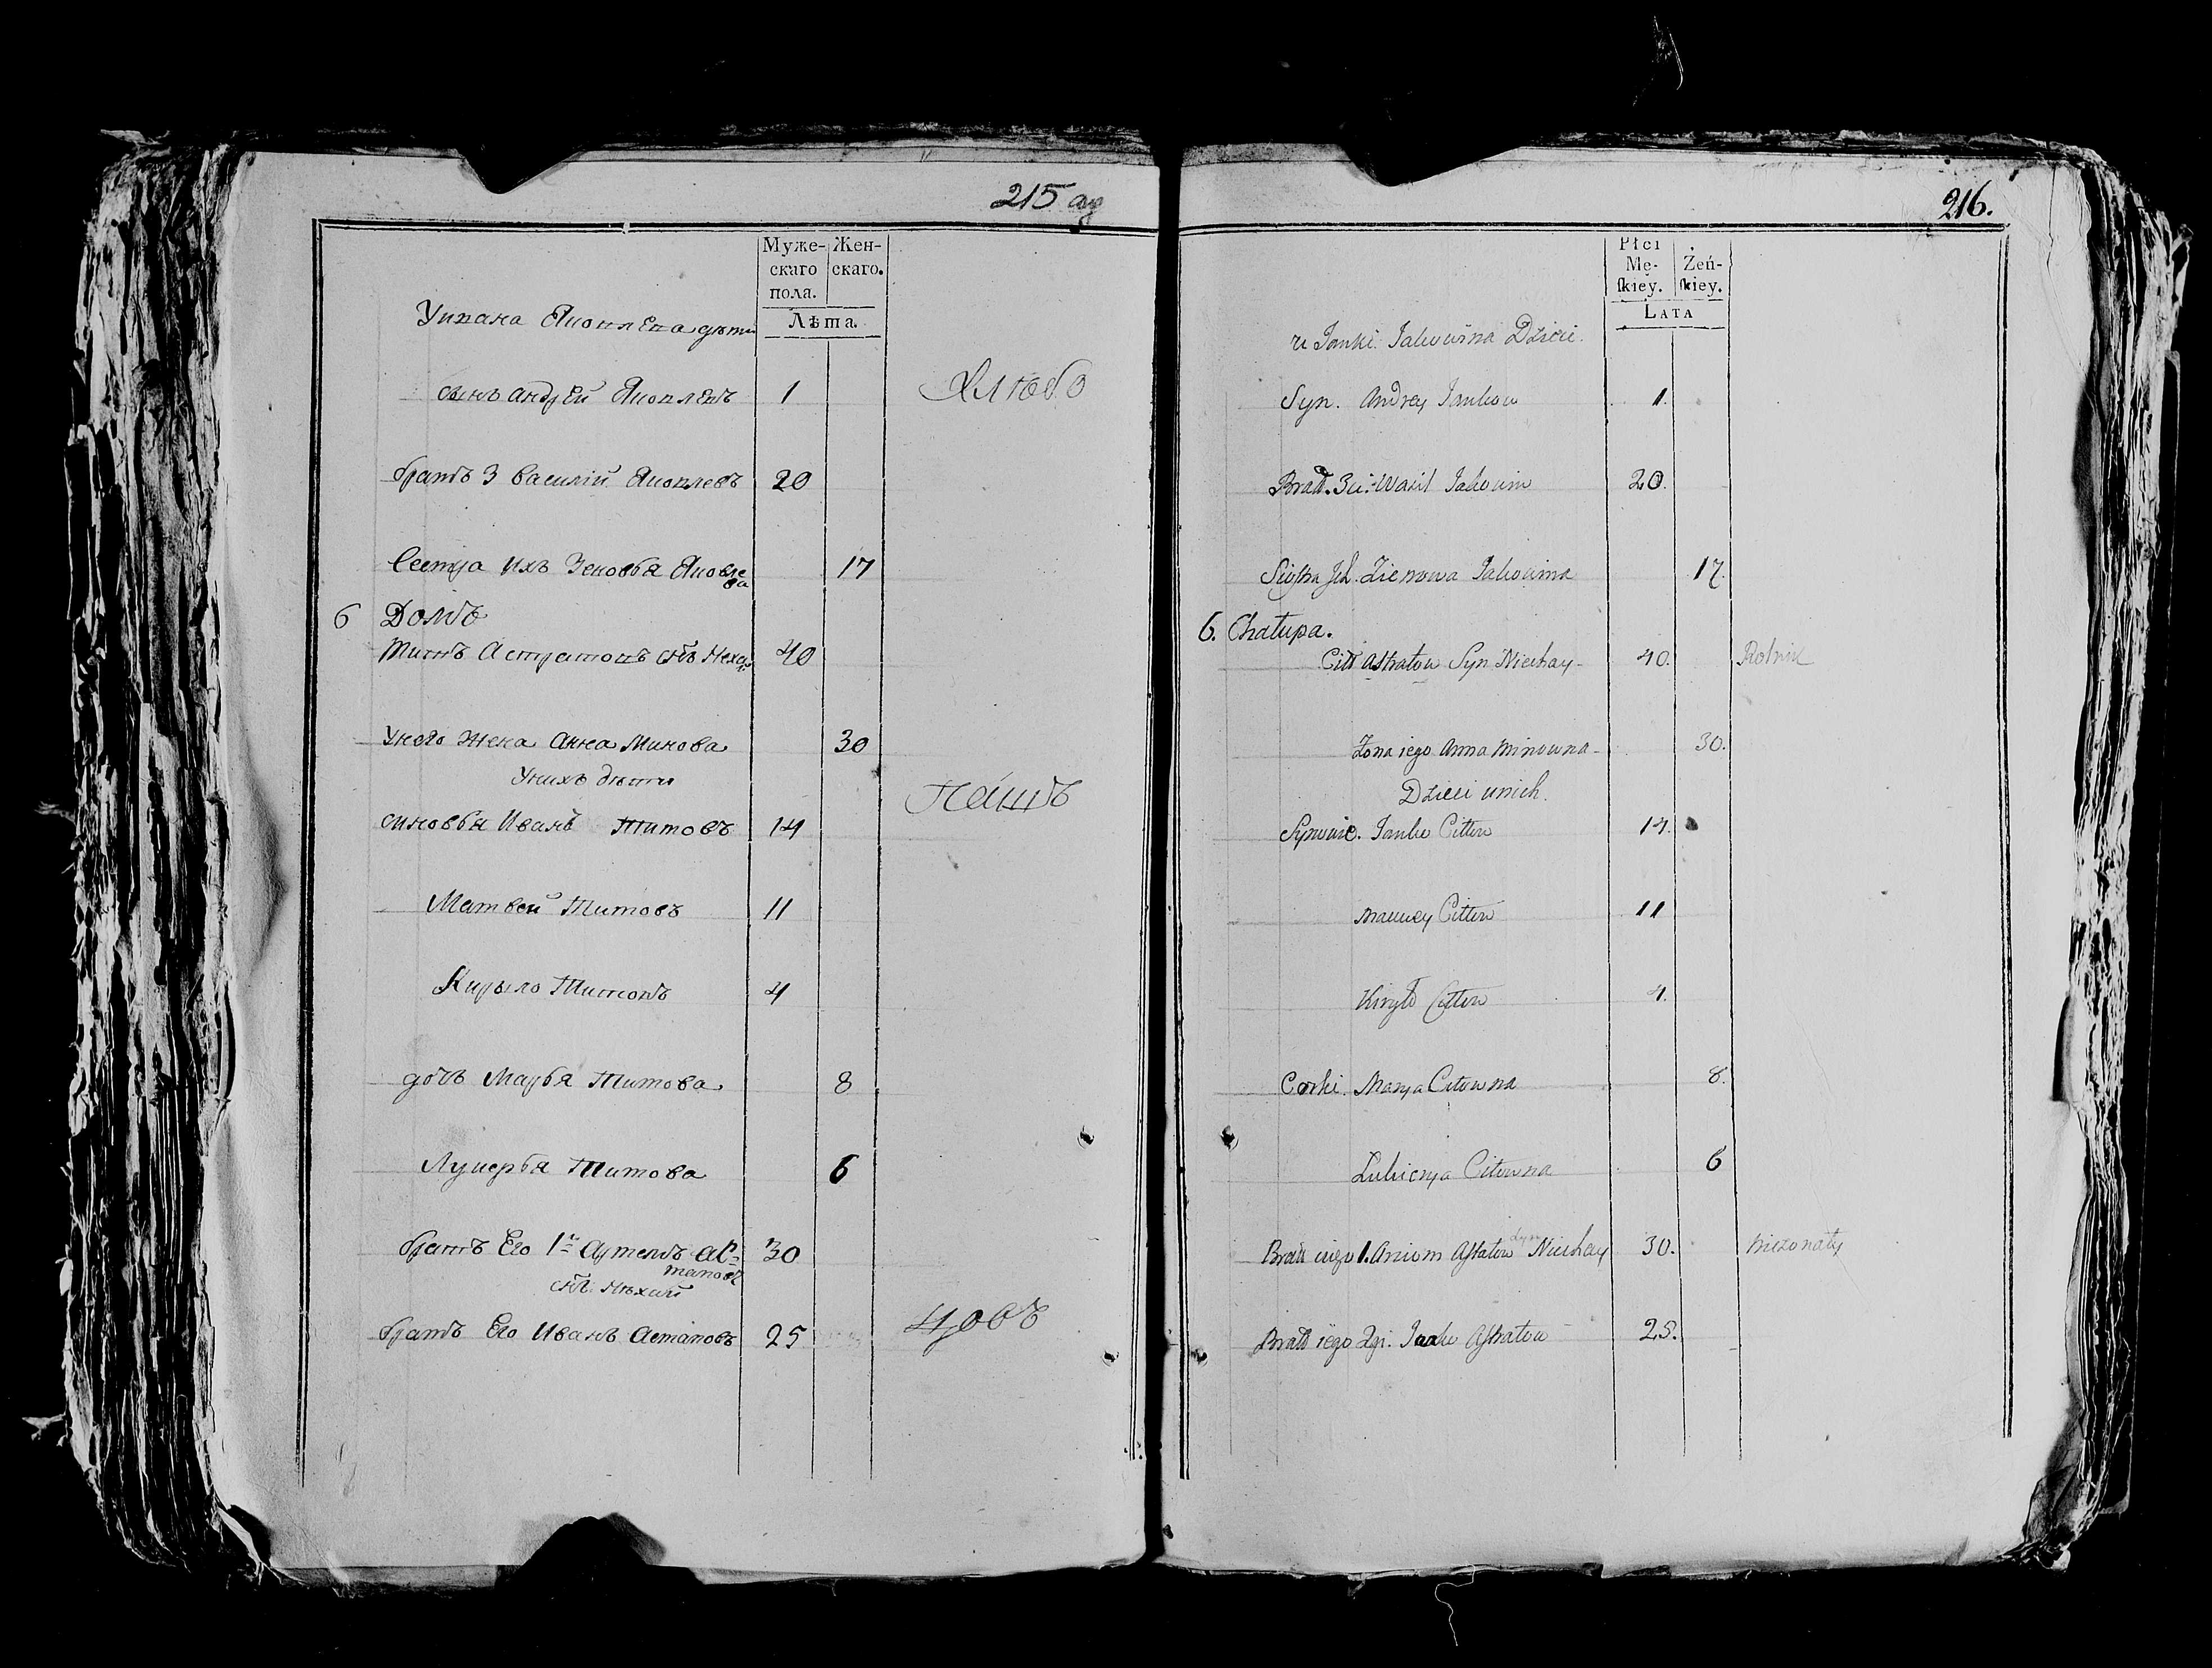 215 об
Муже- Жен-
скаго скаго.
пола.
Лѣта
Уивана Яковлева дѣти
сынъ андрей Яковлевъ 1
Хлѣбо
братъ 3 василій Яковлевъ 20
Сестра ихъ Зеновья Яковлева 17
6 Домъ
Титъ Астратовъ сн҃ъ Нехай 40
Унего жена анна Минова 30
Унихъ дѣти
пашъ
синовья Иванъ Титовъ 14
Матвей Титовъ 11
Кирыло Титовъ 4
дочь Марья Титова 8
Лукерья Титова 6
братъ Его 1й Артемъ ас=
татовъ 30
сн҃ъ Нѣхай
братъ Его Иванъ Астатовъ 25
цовъ
216.
Płci
Mę- Żeń-
skiey. skiey.
LATA
u Janki Jakowina Dzieci.
Syn. Andrey Jankow 1.
Bratt. 3ci. Wasil Jakowiw 20.
Siostra Ich. Zienowa Jakowina 17.
6. Chałupa.
Citt Astratow Syn Niechay 40. Rolnik
Żona iego Anna Minowna 30.
Dzieci unich.
Synowie. Janko Cittow 14.
Maciwey Cittow 11
Kiryło Cittow 4.
Corki. Marya Citowna 8.
Lukierya Citowna 6
Bratt iego 1. Arciom Astratow Syn Niechay 30. nieżonaty
Bratt iego 2gi. Janko Astratow 25.